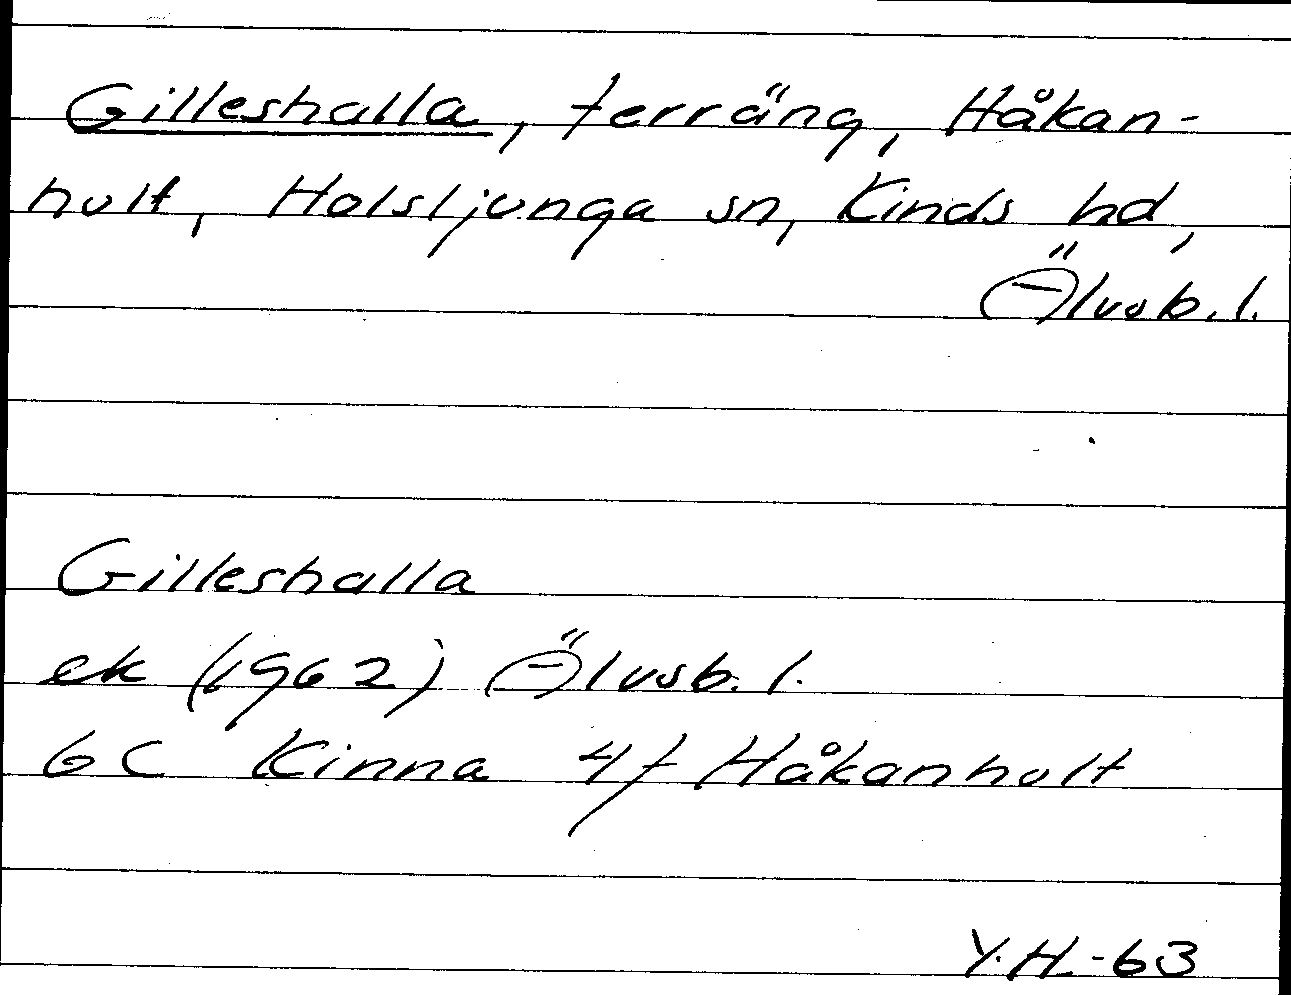 Gilleshalla, terräng, Håkan-
hult, Holsljunga sn, Kinds hd,
Älvsb. l.
Gilleshalla
ek (1962) Älvsb. l.
6 C Kinna 4 f Håkanhult
Y.H.-63